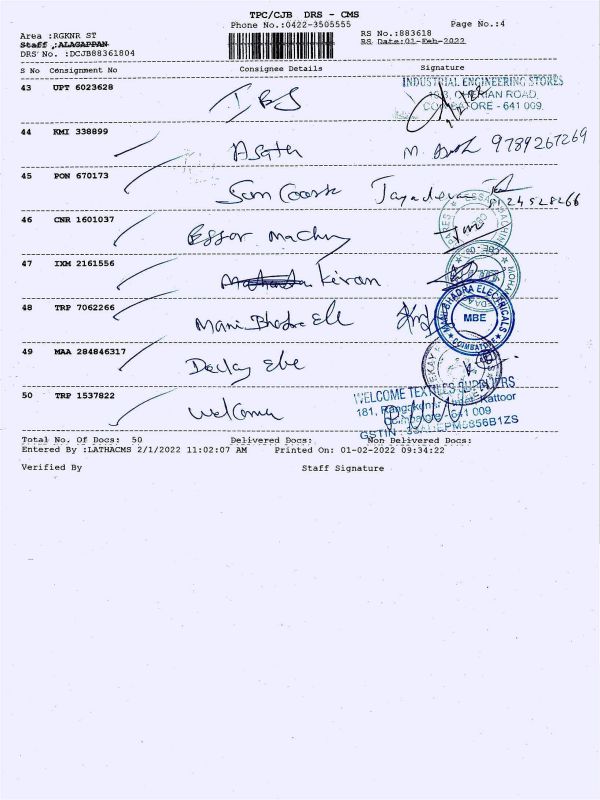 TPC/CJB DRS - CMS
Phone No.:0422-3505555
Page No.:4
Area :RGKNR ST
RS No.:883618
Staff :ALAGAPPAN
RS Date:01-Feb-2022
DRS No. :DCJB88361804
S No Consignment No Consignee Details Signature
43 UPT 6023628 IBS
INDUSTRIAL ENGINEERING STORES
ROAD,
COIMBATORE - 641 009.
44 KMI 338899 9789267269
45 PON 670173 Jayadevan
8124528266
46 CNR 1601037 Essor Machy
47 IXM 2161556 Kiran
48 TRP 7062266 Mani Bhadra Ele
MANIBHADRA ELECTRICALS
MBE
COIMBATORE
49 MAA 284846317 Ele
50 TRP 1537822 Welcome
WELCOME TEXTILES SUPPLIERS
181, Kattoor
641 009
GSTIN
Total No. Of Docs: 50 Delivered Docs: Non Delivered Docs:
Entered By :LATHACMS 2/1/2022 11:02:07 AM Printed On: 01-02-2022 09:34:22
Verified By Staff Signature